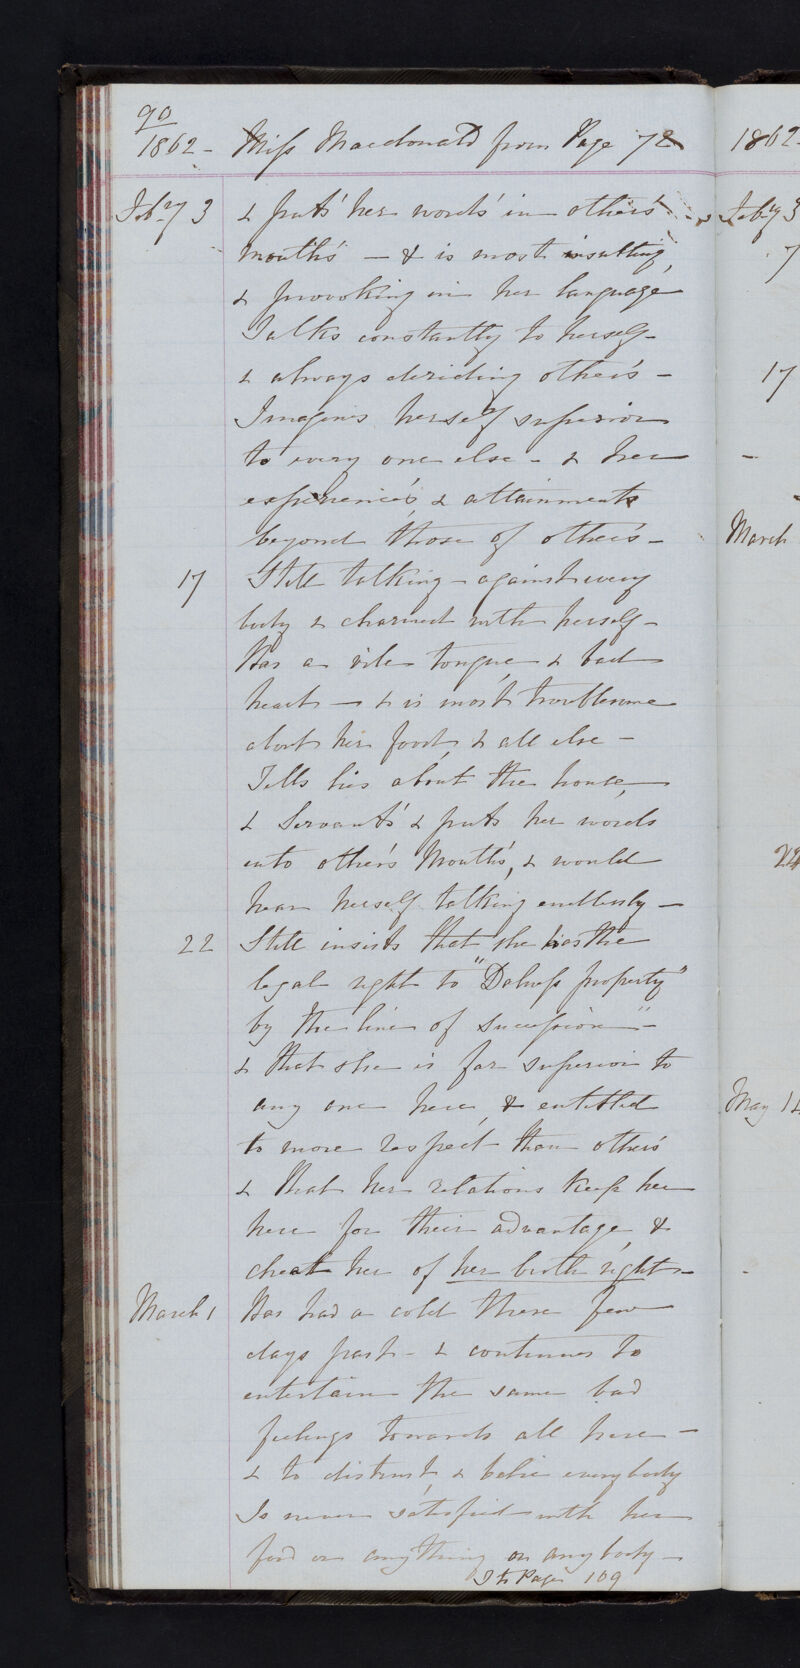 90
1862 - Miss Macdonald from Page 72
Feby 3 & puts' her words' in other's
mouth's — & is most insulting,
& provoking in her language
Talks constantly to herself -
& always deriding other's -
Imagines herself superior
to every one else - & her
experience's & attainments
beyond those of other's -
17 Still talking - against every
body & charmed with herself -
Has a vile tongue & bad
heart — & is most troublesome
about her food, & all else -
Tells lies about the house,
& Servants' & puts her words
into other's Mouth's, & would
hear herself talking endlessly —
22 Still insists that she has the
legal right to "Dalness property"
by the line of succession" -
& that she is far superior to
any one here, & entitled
to more respect than other's
& that her relations keep her
here for their advantage, &
cheat her of her birth right -
March 1 Has had a cold these few
days past - & continues to
entertain the same bad
feelings towards all here -
& to distrust, & belie everybody
Is never satisfied with her
food or anything or any body -
To Page 109
1862
Feby 3
7
17
March
22
May 14